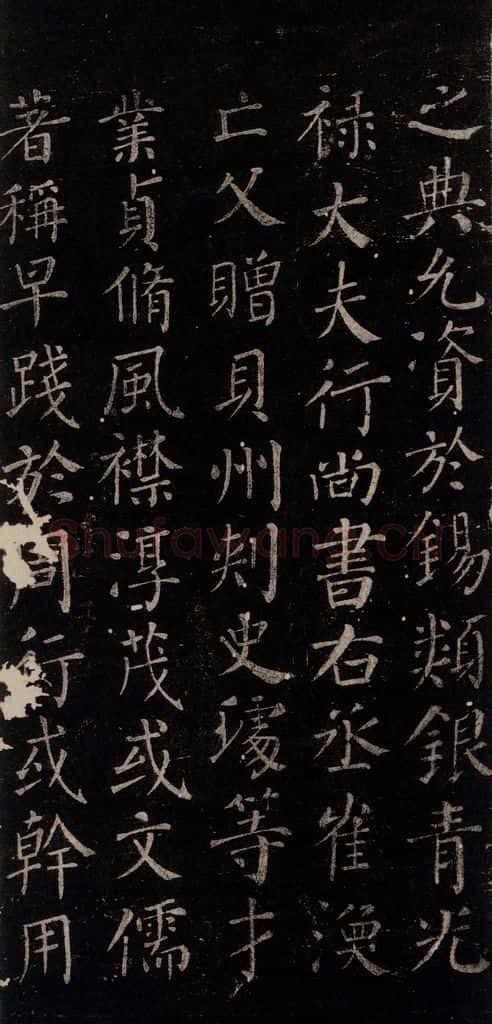 之典允資於錫類銀青光
禄大夫行尚書右丞崔渙
亡父贈貝州刾史璩等才
業貞脩風襟淳茂或文儒
著稱早踐於周行或幹用
Shufawang.cn